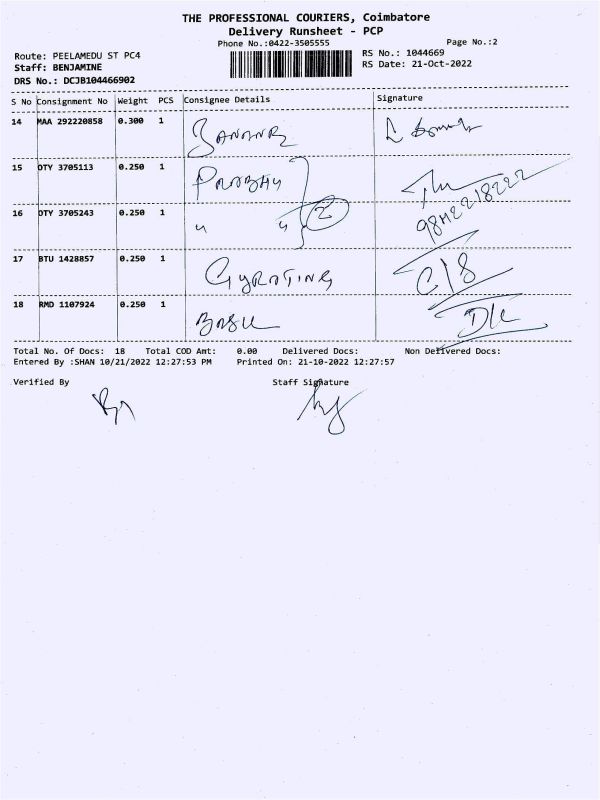 THE PROFESSIONAL COURIERS, Coimbatore
Delivery Runsheet - PCP
Phone No.:0422-3505555
Page No.:2
Route: PEELAMEDU ST PC4
RS No.: 1044669
Staff: BENJAMINE
RS Date: 21-Oct-2022
DRS No.: DCJB104466902
S No Consignment No Weight PCS Consignee Details Signature
14 MAA 292220858 0.300 1
15 OTY 3705113 0.250 1 PRABHU
16 OTY 3705243 0.250 1 " " 2
9842218222
17 BTU 1428857 0.250 1 GYRATING C/8
18 RMD 1107924 0.250 1 BASU
Total No. Of Docs: 18 Total COD Amt: 0.00 Delivered Docs: Non Delivered Docs:
Entered By :SHAN 10/21/2022 12:27:53 PM Printed On: 21-10-2022 12:27:57
Verified By Staff Signature